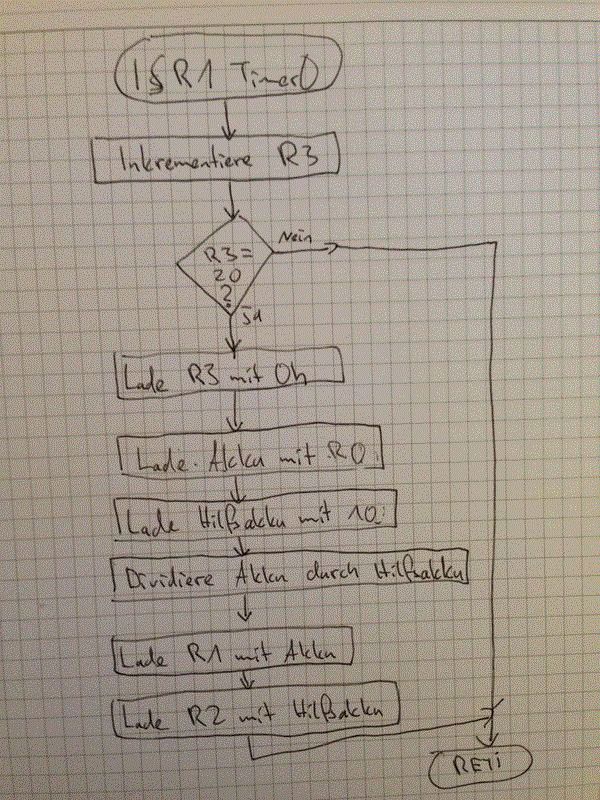 ISR1 Timer0
Inkrementiere R3
R3=
20
?
Nein
Ja
Lade R3 mit 0h
Lade Akku mit R0
Lade Hilfsakku mit 10
Dividiere Akku durch Hilfsakku
Lade R1 mit Akku
Lade R2 mit Hilfsakku
RETI